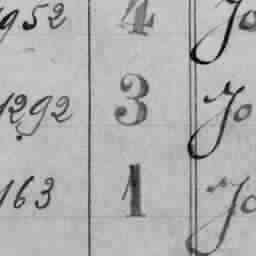 952 4 Jo
1292 3 Jo
163 1 Jo